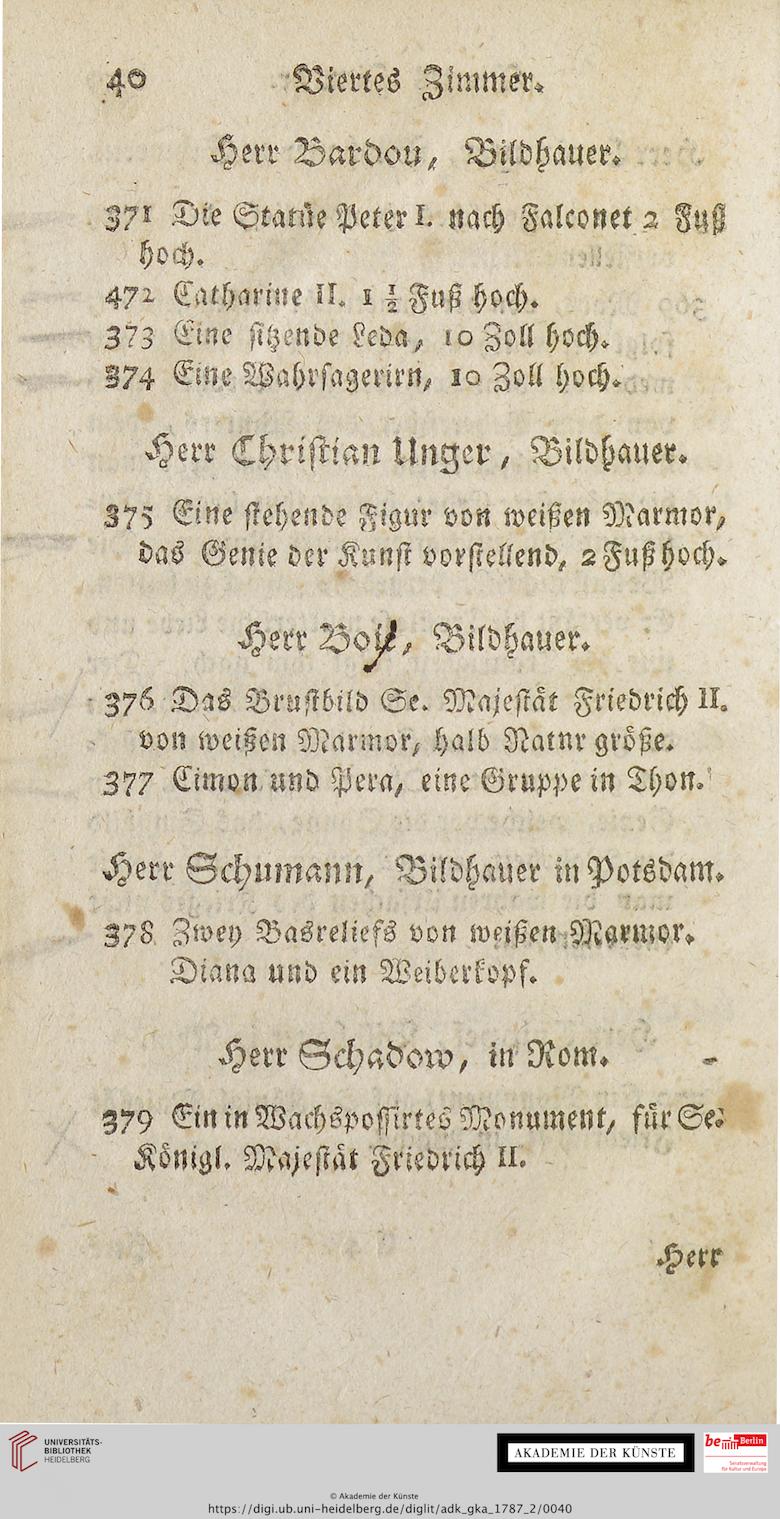 40 Viertes Zimmer.
Herr Bardou, Bildhauer.
371 Die Statüe Peter I. nach Falconet 2 Fuß
hoch.
472 Catharine II. 1 ½ Fuß hoch.
373 Eine sitzende Leda, 10 Zoll hoch.
374 Eine Wahrsagerirn, 10 Zoll hoch.
Herr Christian Unger, Bildhauer.
375 Eine stehende Figur von weißen Marmor,
das Genie der Kunst vorstellend, 2 Fuß hoch.
Herr Boy, Bildhauer.
376 Das Brustbild Se. Majestät Friedrich II.
von weißen Marmor, halb Natur größe.
377 Cimon und Pera, eine Gruppe in Thon.
Herr Schumann, Bildhauer in Potsdam.
378 Zwey Basreliefs von weißen Marmor.
Diana und ein Weiberkopf.
Herr Schadow, in Rom.
379 Ein in Wachspossirtes Monument, für Se.
Königl. Majestät Friedrich II.
Herr
UNIVERSITÄTS-
BIBLIOTHEK
HEIDELBERG
AKADEMIE DER KÜNSTE
be Berlin
Senatsverwaltung
für Kultur und Europa
© Akademie der Künste
https://digi.ub.uni-heidelberg.de/diglit/adk_gka_1787_2/0040